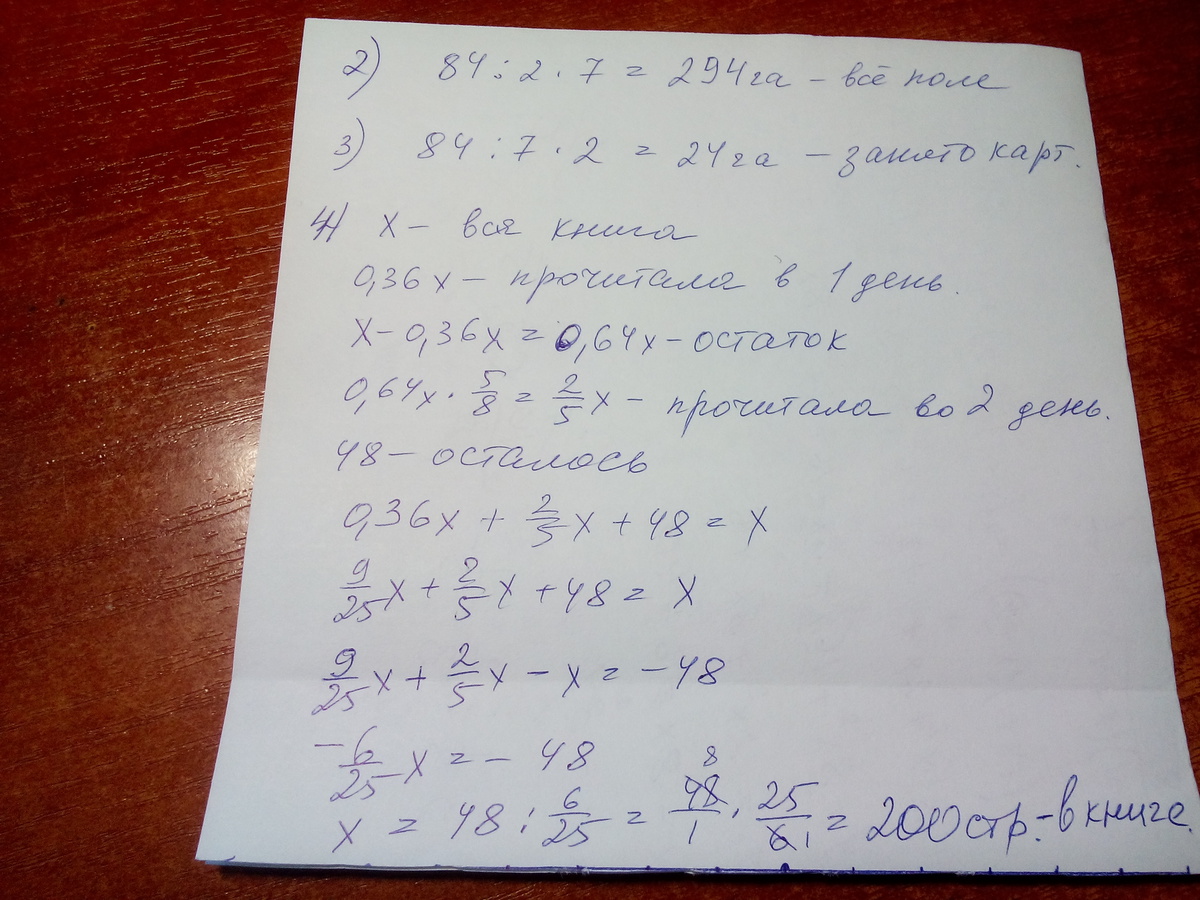 2) 84 : 2 · 7 = 294 га – всё поле
3) 84 : 7 · 2 = 24 га – занято карт.
4) х – вся книга
0,36х – прочитала в 1 день.
х – 0,36х = 0,64х – остаток
0,64х · 5/8 = 2/5х – прочитала во 2 день.
48 – осталось
0,36х + 2/5х + 48 = х
9/25х + 2/5х + 48 = х
9/25х + 2/5х – х = –48
–6/25х = – 48
х = 48 : 6/25 = 48/1 · 25/6 = 200 стр. – в книге.